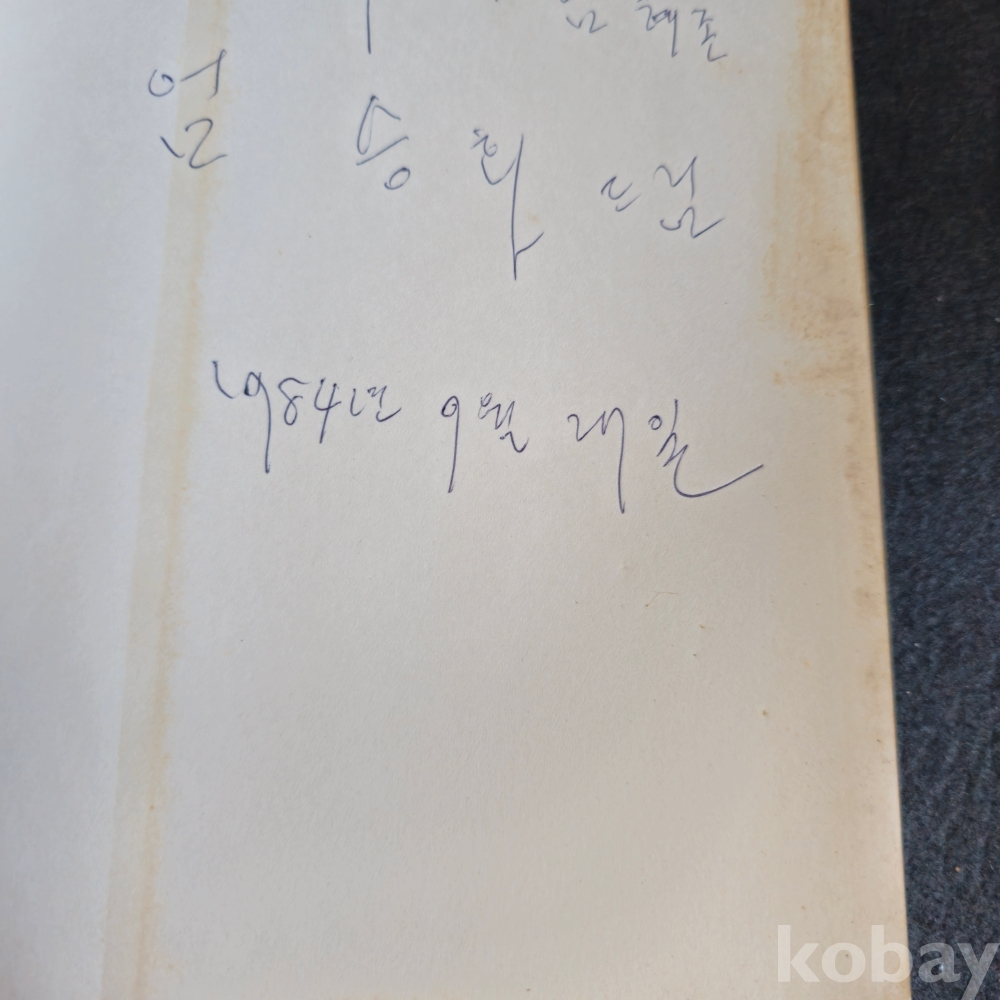 님 혜존
엄 승화 드림
1984년 9월 27일
kobay